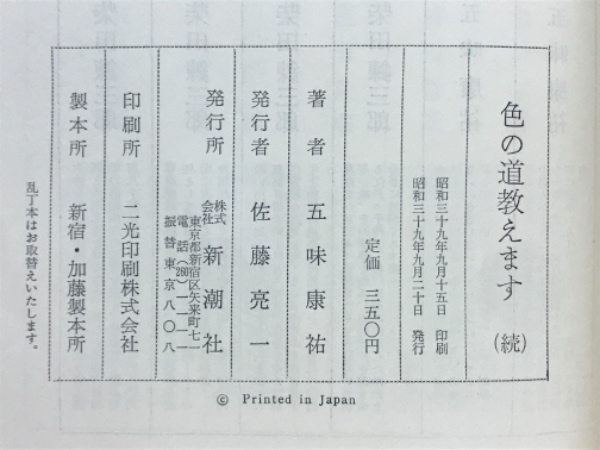 色の道教えます (続)
昭和三十九年九月十五日 印刷
昭和三十九年九月二十日 発行
定価 三五〇円
著者 五味康祐
発行者 佐藤亮一
発行所 株式会社 新潮社
東京都新宿区矢来町七一
電話(260)一一一一
振替東京八〇八
印刷所 二光印刷株式会社
製本所 新宿・加藤製本所
乱丁本はお取替えいたします。
© Printed in Japan